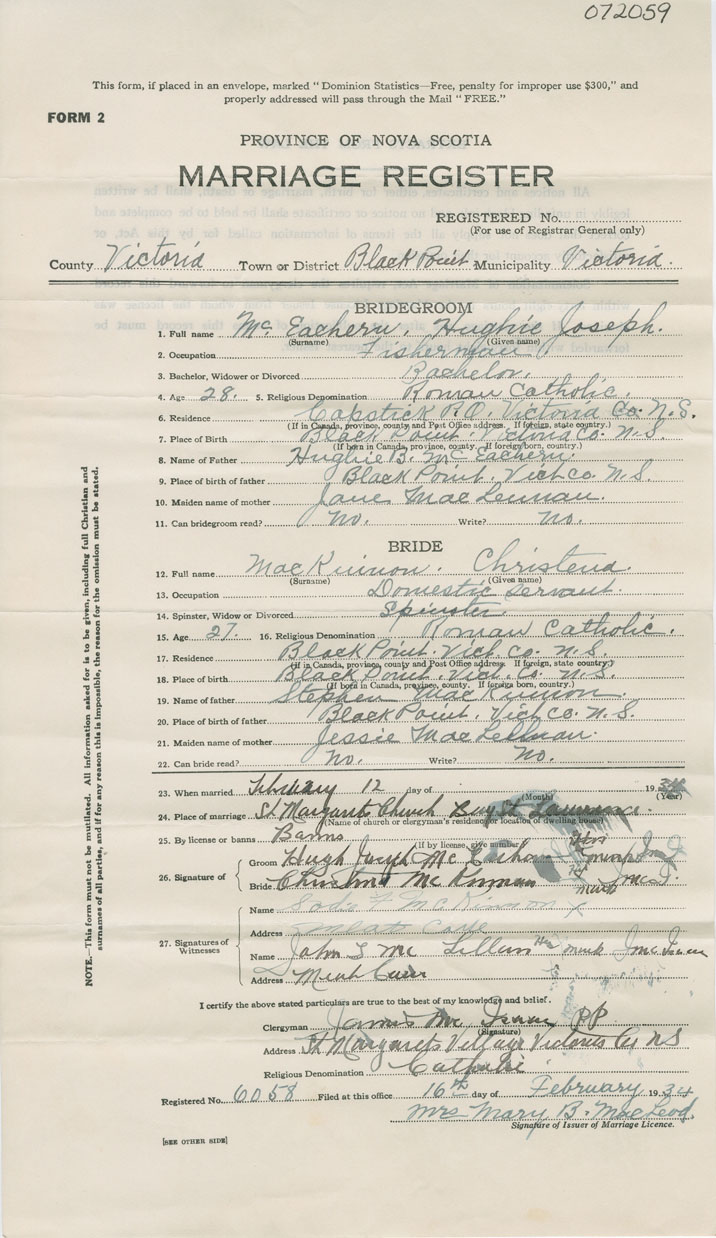 072059
This form, if placed in an envelope, marked "Dominion Statistics—Free, penalty for improper use $300," and
properly addressed will pass through the Mail "FREE."
FORM 2
PROVINCE OF NOVA SCOTIA
MARRIAGE REGISTER
REGISTERED No.
(For use of Registrar General only)
County Victoria Town or District Black Point Municipality Victoria.
BRIDEGROOM
1. Full name Mc Eachern, Hughie Joseph.
(Surname) (Given name)
2. Occupation Fisherman
3. Bachelor, Widower or Divorced Bachelor.
4. Age 28. 5. Religious Denomination Roman Catholic.
6. Residence Capstick P.O. Victoria Co. N.S.
(If in Canada, province, county and Post Office address. If foreign, state country.)
7. Place of Birth Black Point. Victoria Co. N.S.
(If born in Canada, province, county. If foreign born, country.)
8. Name of Father Hughie B. Mc Eachern.
9. Place of birth of father Black Point. Vict co. N.S.
10. Maiden name of mother Jane Mac Lennan.
11. Can bridegroom read? No. Write? No.
BRIDE
12. Full name Mac Kinnon. Christena.
(Surname) (Given name)
13. Occupation Domestic Servant.
14. Spinster, Widow or Divorced Spinster
15. Age 27. 16. Religious Denomination Roman Catholic.
17. Residence Black Point. Vict. Co. N.S.
(If in Canada, province, county and Post Office address. If foreign, state country.)
18. Place of birth Black Point. Vict. Co. N.S.
(If born in Canada, province, county. If foreign born, country.)
19. Name of father Stephen Mac Kinnon.
20. Place of birth of father Black Point. Vict co. N.S.
21. Maiden name of mother Jessie Mac Lellnan.
22. Can bride read? No. Write? No.
23. When married February 12 day of 19
(Month) (Year)
24. Place of marriage St Margarets Church Bay St Lawrence.
(Name of church or clergyman's residence or location of dwelling house)
25. By license or banns Banns
(If by license, give number)
26. Signature of
Groom Hugh Joseph Mc
Bride Mc Kinnon mark
27. Signatures of Witnesses
Name Mc Kinnon x
Address Meat Cove
Name John S Mc Lellan his mark J Mc Isaac
Address Meat Cove
I certify the above stated particulars are true to the best of my knowledge and belief.
Clergyman James Mc Isaac PP
(Signature)
Address St Margarets Village Victoria Co NS
Religious Denomination Catholic
Registered No. 6058 Filed at this office 16th day of February 1934
Mrs Mary B. MacLeod.
Signature of Issuer of Marriage Licence.
[SEE OTHER SIDE]
NOTE.—This form must not be mutilated. All information asked for is to be given, including full Christian and
surnames of all parties, and if for any reason this is impossible, the reason for the omission must be stated.